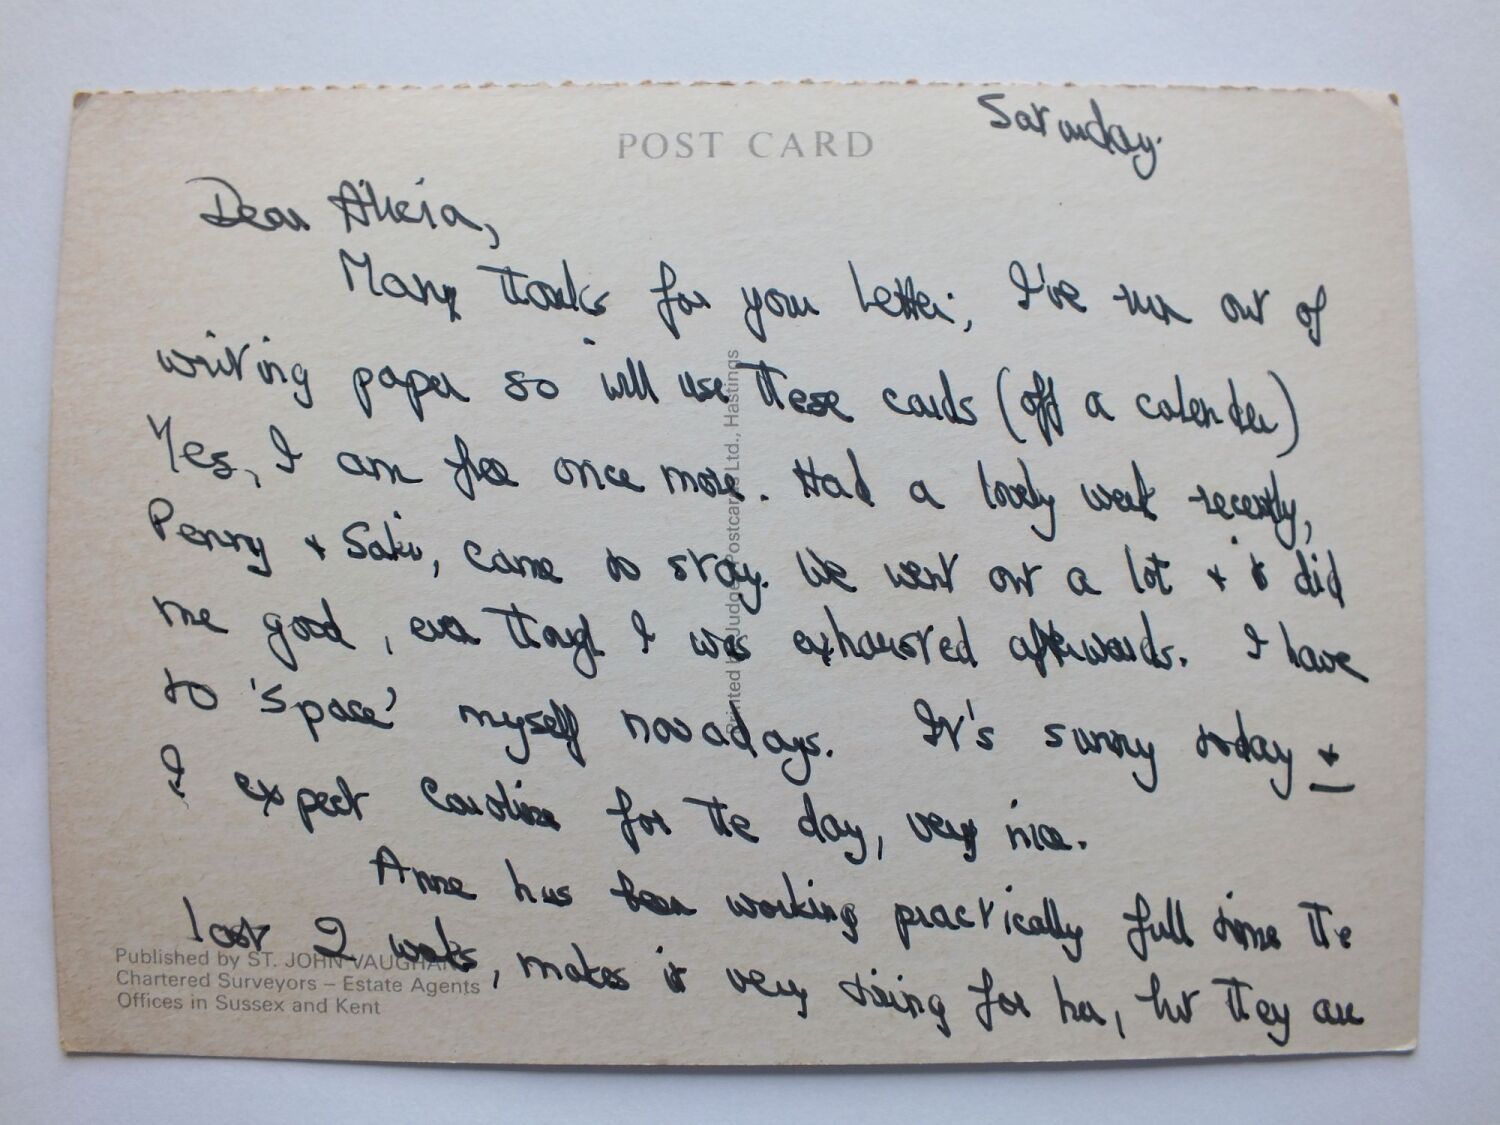 POST CARD
Saturday.
Dear Alicia,
Many thanks for your letter; I've run out of
writing paper so will use these cards (off a calender)
Yes, I am free once more. Had a lovely week recently,
Penny + Saki, came to stay. We went out a lot + it did
me good, even though I was exhausted afterwards. I have
to 'space' myself nowadays. It's sunny today +
I expect Caroline for the day, very nice.
Anne has been working practically full time the
last 2 weeks, makes it very tiring for her, but they are
Published by ST. JOHN VAUGHAN
Chartered Surveyors – Estate Agents
Offices in Sussex and Kent
Printed by Judges Postcards Ltd., Hastings